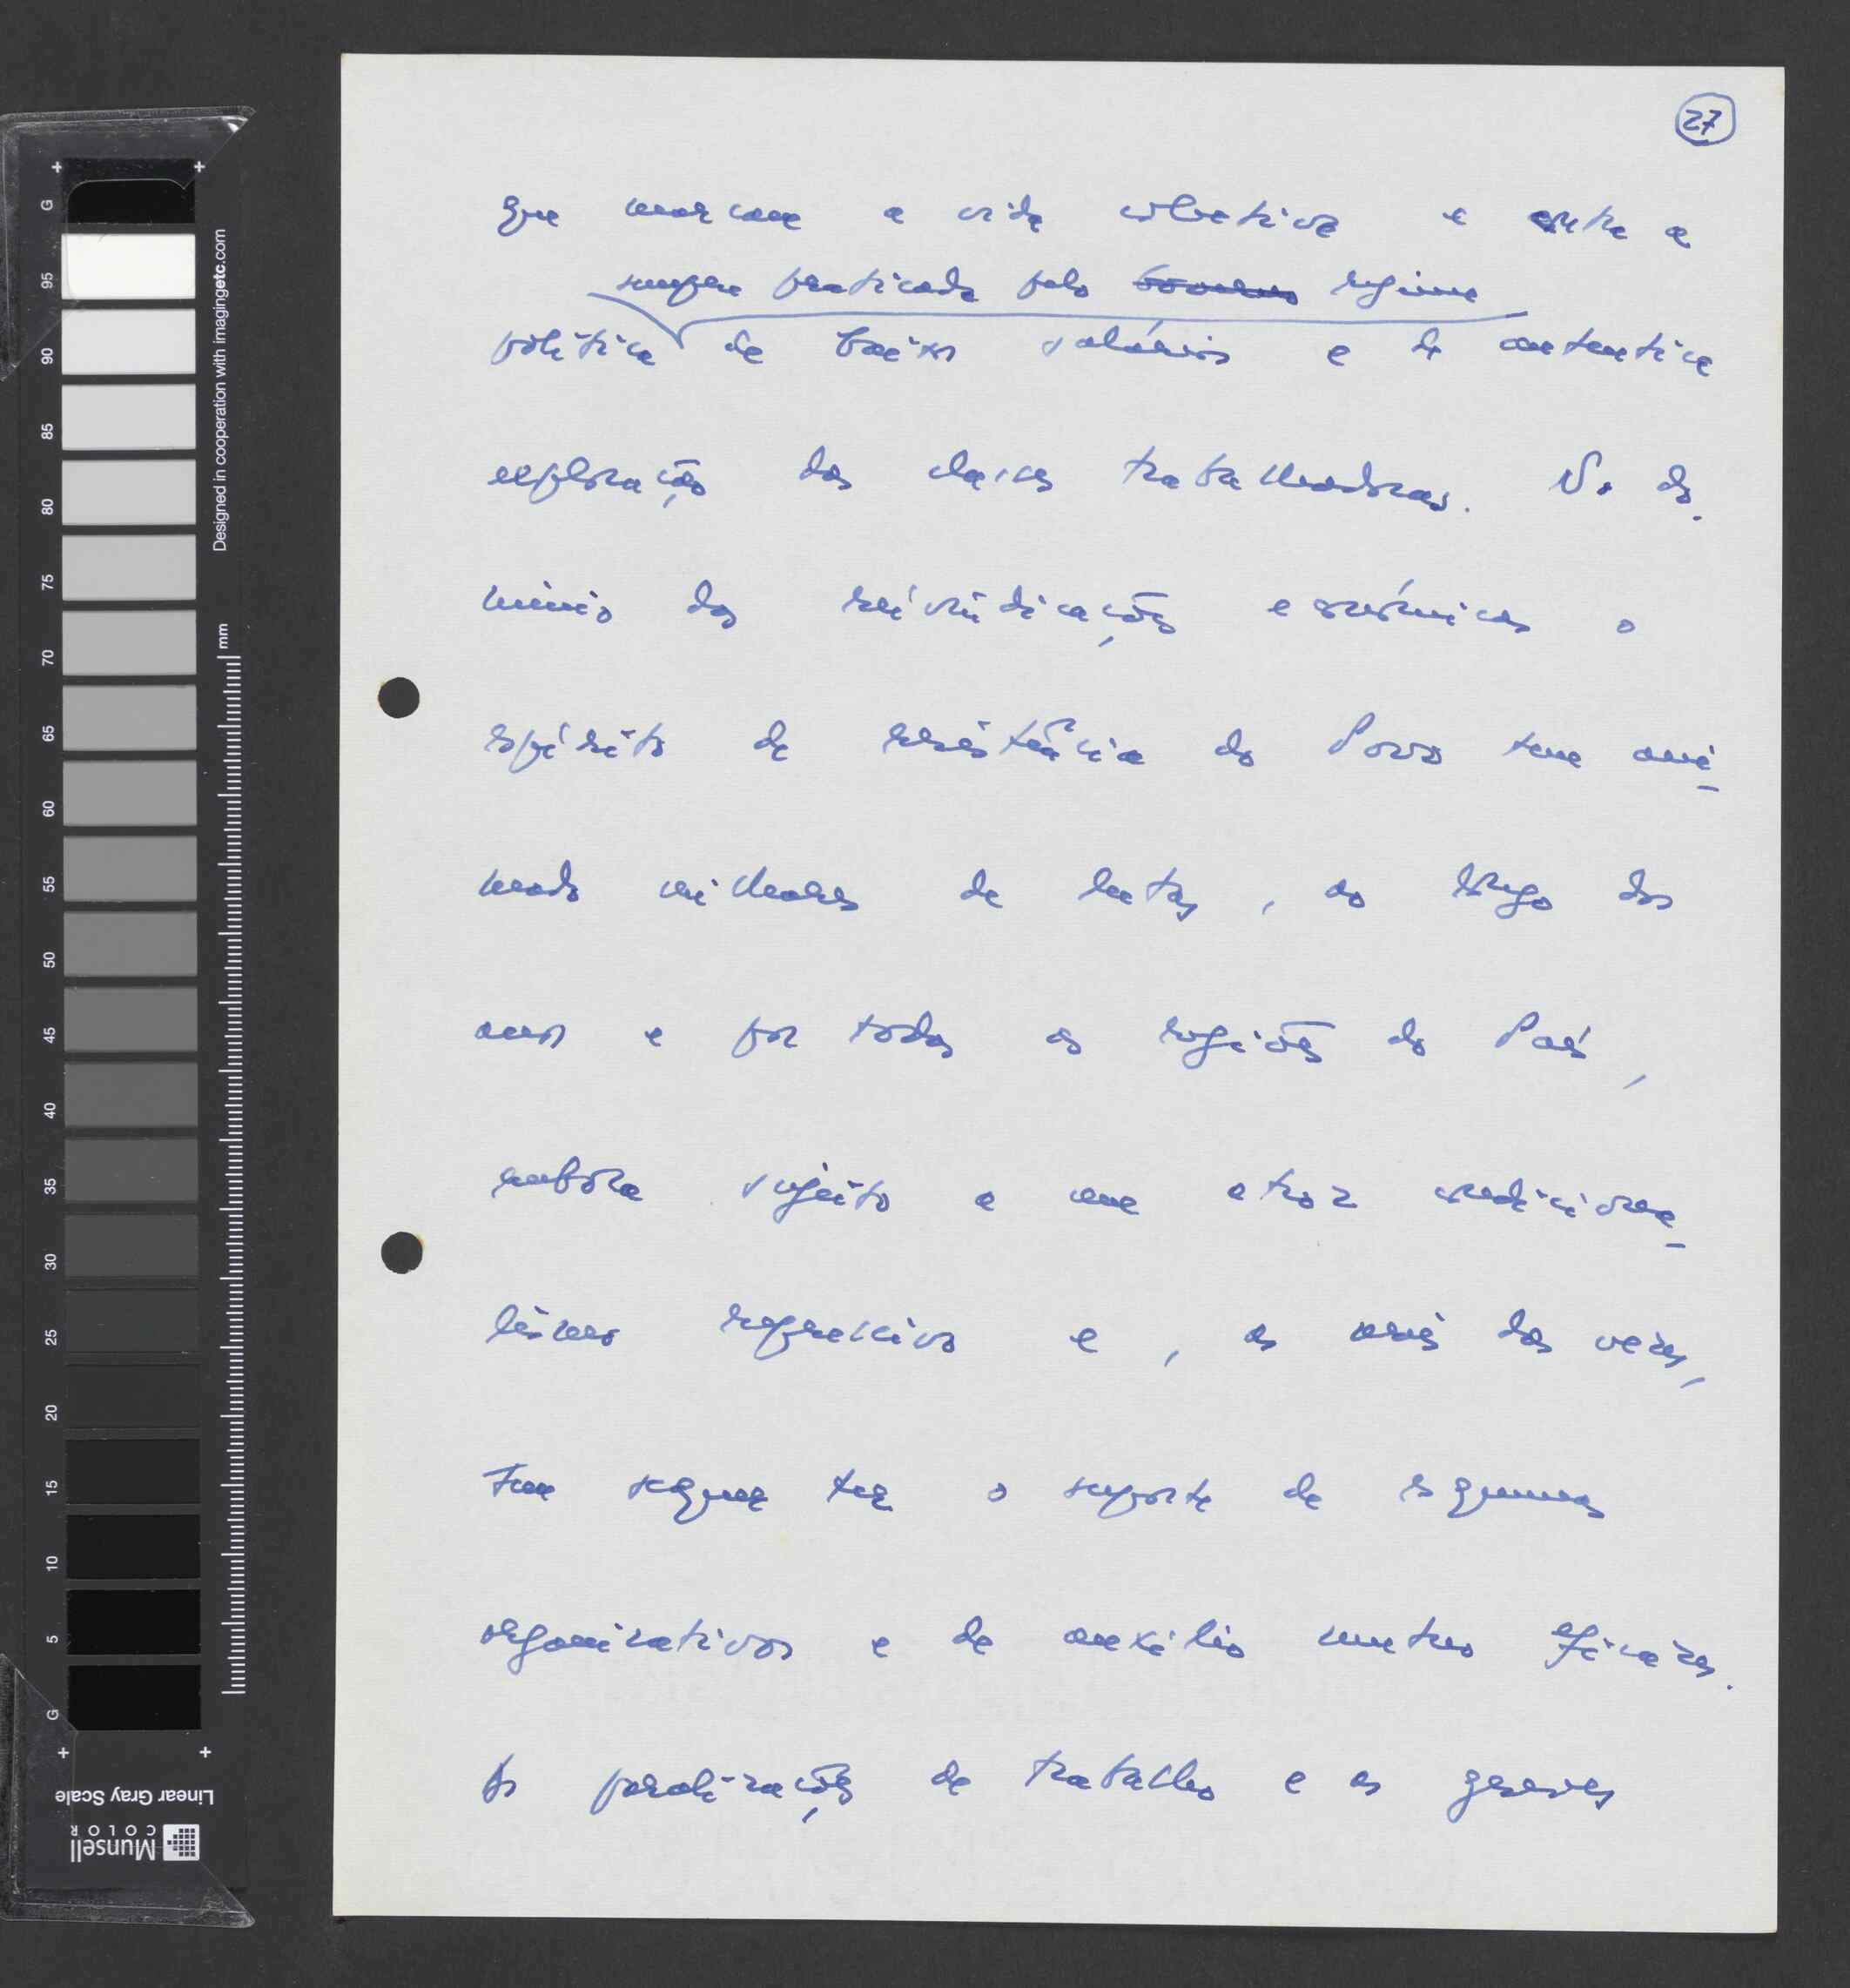 27
que marcam a vida colectiva e contra a
sempre praticada pelo Governo regime
política de baixos salários e de autentica
exploração das classes trabalhadoras. No do-
mínio das reivindicações económicas o
espírito de resistência do Povo tem ani-
mado milhares de lutas, ao longo dos
anos e por todas as regiões do País,
embora sujeito a um atroz condiciona-
lismo repressivo e, as mais das vezes,
sem sequer ter o suporte de esquemas
organizativos e de auxílio mutuo eficazes.
As paralizações de trabalho e as greves
Designed in cooperation with imagingetc.com
mm
G
95
90
85
80
75
70
65
60
55
50
45
40
35
30
25
20
15
10
5
G
Linear Gray Scale
Munsell
COLOR